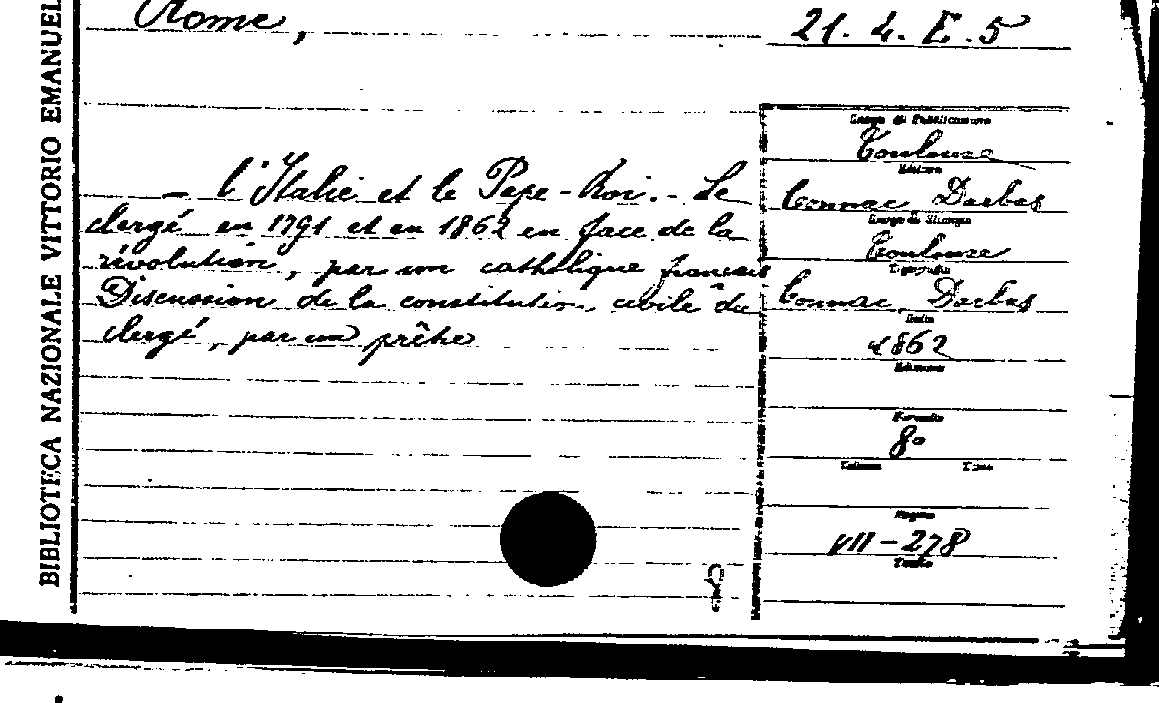 BIBLIOTECA NAZIONALE VITTORIO EMANUEL
Rome,
21. 4. E. 5
— l'Italie et le Pape-Roi. - Le
clergé en 1791 et en 1862 en face de la
révolution, par un catholique français
Discussion de la constitution civile du
clergé, par un prêtre
Luogo di Pubblicazione
Toulouse
Editore
Connac Darbas
Luogo di Stampa
Toulouse
Tipografia
Connac Darbas
Data
1862
Formato
8°
Volume
Pagine
VII-278